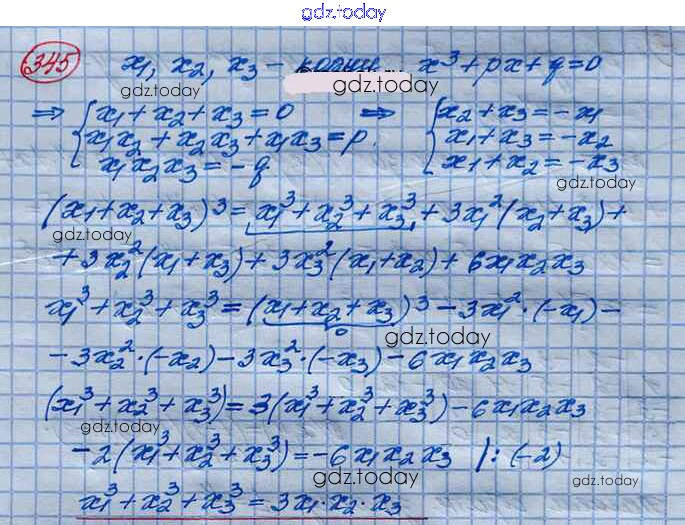 gdz.today
gdz.today
345 x₁, x₂, x₃ – x³ + px + q = 0
gdz.today gdz.today
⇒ { x₁ + x₂ + x₃ = 0 ⇒ { x₂ + x₃ = -x₁
x₁x₂ + x₂x₃ + x₁x₃ = p. x₁ + x₃ = -x₂
x₁x₂x₃ = -q x₁ + x₂ = -x₃
gdz.today
(x₁ + x₂ + x₃)³ = x₁³ + x₂³ + x₃³ + 3x₁²(x₂ + x₃) +
gdz.today
+ 3x₂²(x₁ + x₃) + 3x₃²(x₁ + x₂) + 6x₁x₂x₃
x₁³ + x₂³ + x₃³ = (x₁ + x₂ + x₃)³ - 3x₁²·(-x₁) -
0
gdz.today
- 3x₂²·(-x₂) - 3x₃²·(-x₃) - 6x₁x₂x₃
(x₁³ + x₂³ + x₃³) = 3(x₁³ + x₂³ + x₃³) - 6x₁x₂x₃
gdz.today
-2(x₁³ + x₂³ + x₃³) = -6x₁x₂x₃ |: (-2)
gdz.today gdz.today
x₁³ + x₂³ + x₃³ = 3x₁·x₂·x₃